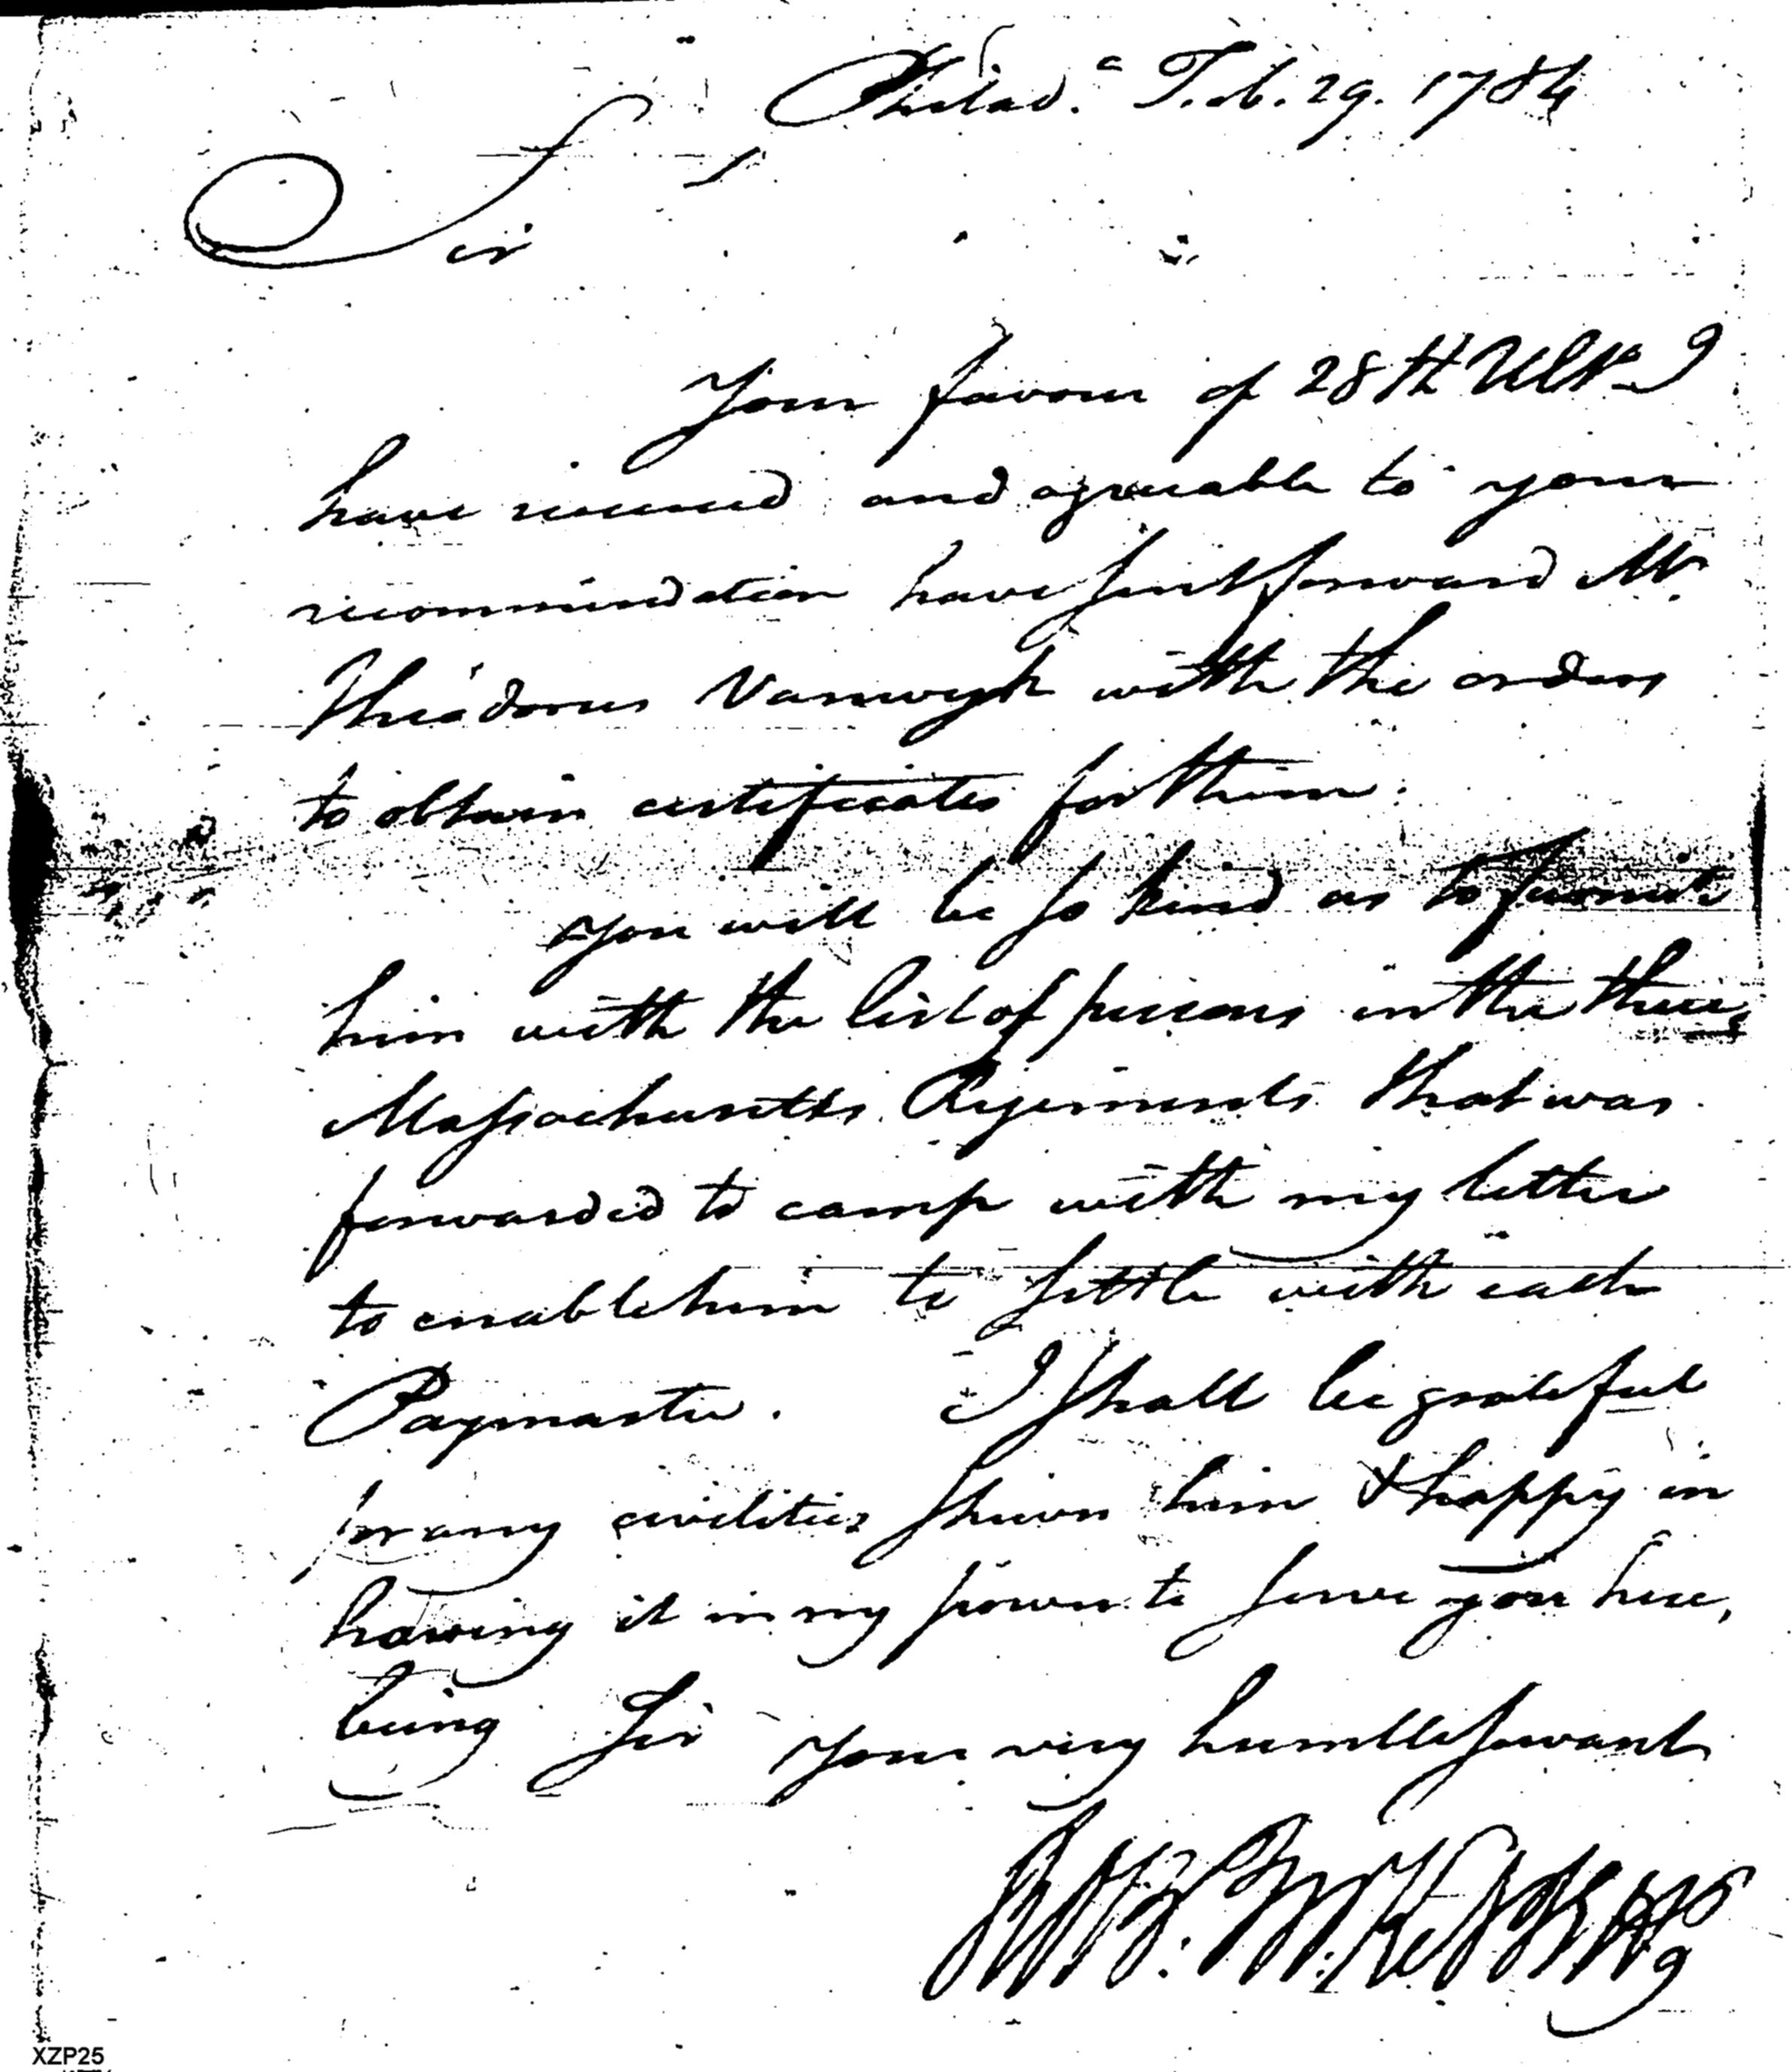 Philad.a Feb. 29. 1784
Sir
Your favour of 28th Ulto I
have received and agreeable to your
recommendation have sent forward Mr.
Theodorus Vanwyk with the orders
to obtain certificates for them.
You will be so kind as to furnish
him with the list of persons in the three
Massachusetts Regiments that was
forwarded to camp with my letter
to enable him to settle with each
Paymaster. I shall be grateful
for any civilities shewn him & happy in
having it in my power to serve you here,
being Sir your very humble servant
XZP25